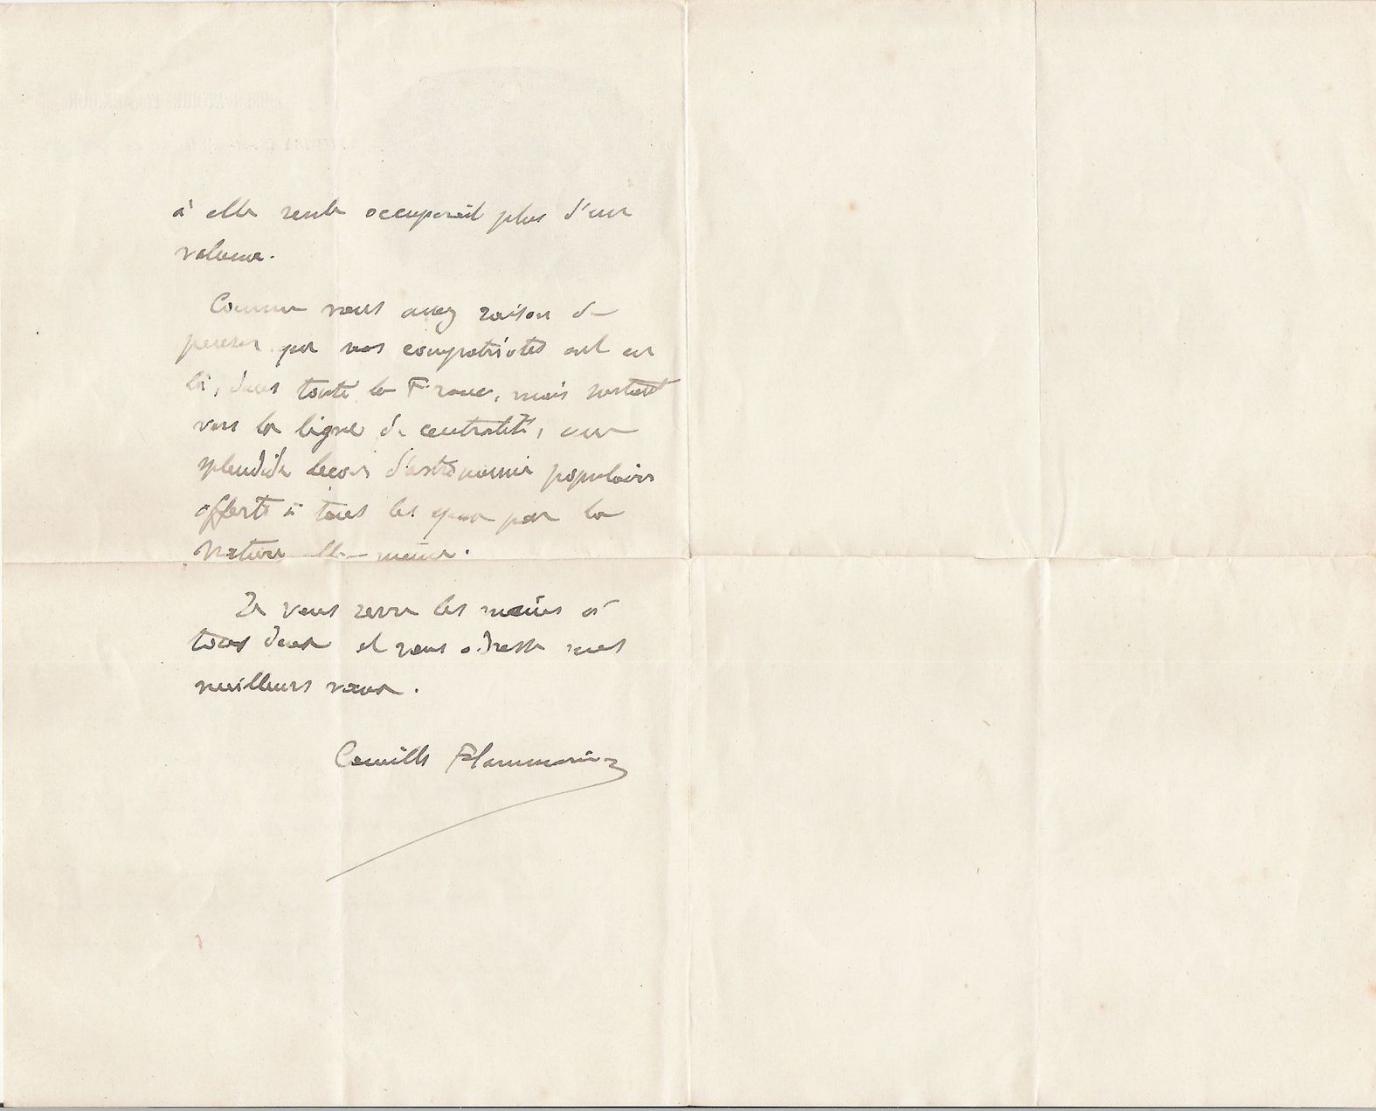 à elle seule occuperait plus d'un
volume.
Comme vous avez raison de
penser que nos compatriotes ont eu
là, dans toute la France, mais surtout
vers la ligne de centralité, une
splendide leçon d'astronomie populaire
offerte à tous les yeux par la
Nature elle-même.
Je vous serre les mains à
tous deux et vous adresse mes
meilleurs vœux.
Camille Flammarion